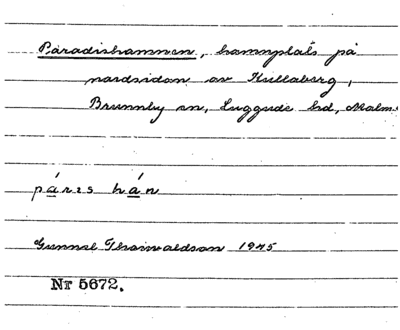 Paradishamnen, hamnplats på
nordsidan av Kullaberg,
Brunnby sn, Luggude hd, Malm
páres hán
Gunnel Thorwaldson 1945
Nr 5672.